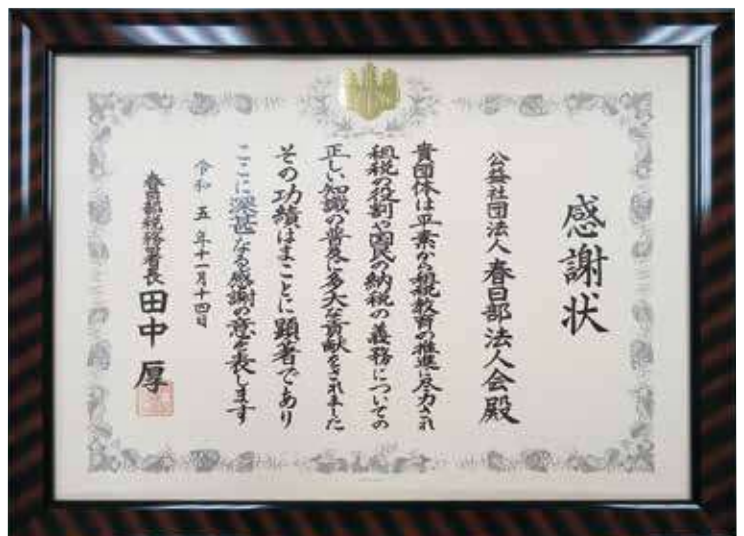 感謝状
公益社団法人春日部法人会殿
貴団体は平素から租税教育の推進に尽力され
租税の役割や国民の納税の義務についての
正しい知識の普及に多大な貢献をされました
その功績はまことに顕著であり
ここに深甚なる感謝の意を表します
令和五年十一月十四日
春日部税務署長 田中 厚